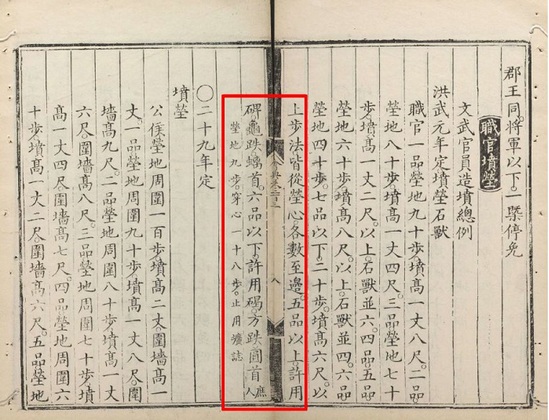 郡王同。將軍以下。一槩停免
職官墳塋
文武官員造墳總例
洪武元年定墳塋石獸
職官一品塋地九十步。墳高一丈八尺。二品
塋地八十步。墳高一丈四尺。三品塋地七十
步。墳高一丈二尺。以上。石獸並六。四品
塋地六十步。墳高八尺。以上。石獸並四。六品
塋地四十步。七品以下。二十步。墳高六尺。以
上步法皆從塋心各數至邊。五品以上許用
碑龜趺螭首。六品以下。許用碣。方趺圓首。庶人
塋地九步。穿心一十八步。止用壙誌
〇二十九年定
墳塋
公侯塋地周圍一百步。墳高二丈圍墻高一
丈。一品塋地周圍九十步。墳高一丈八尺圍
墻高九尺。二品塋地周圍八十步。墳高一丈
六尺圍墻高八尺。三品塋地周圍七十步。墳
高一丈四尺圍墻高七尺。四品塋地周圍六
十步。墳高一丈二尺圍墻高六尺。五品塋地